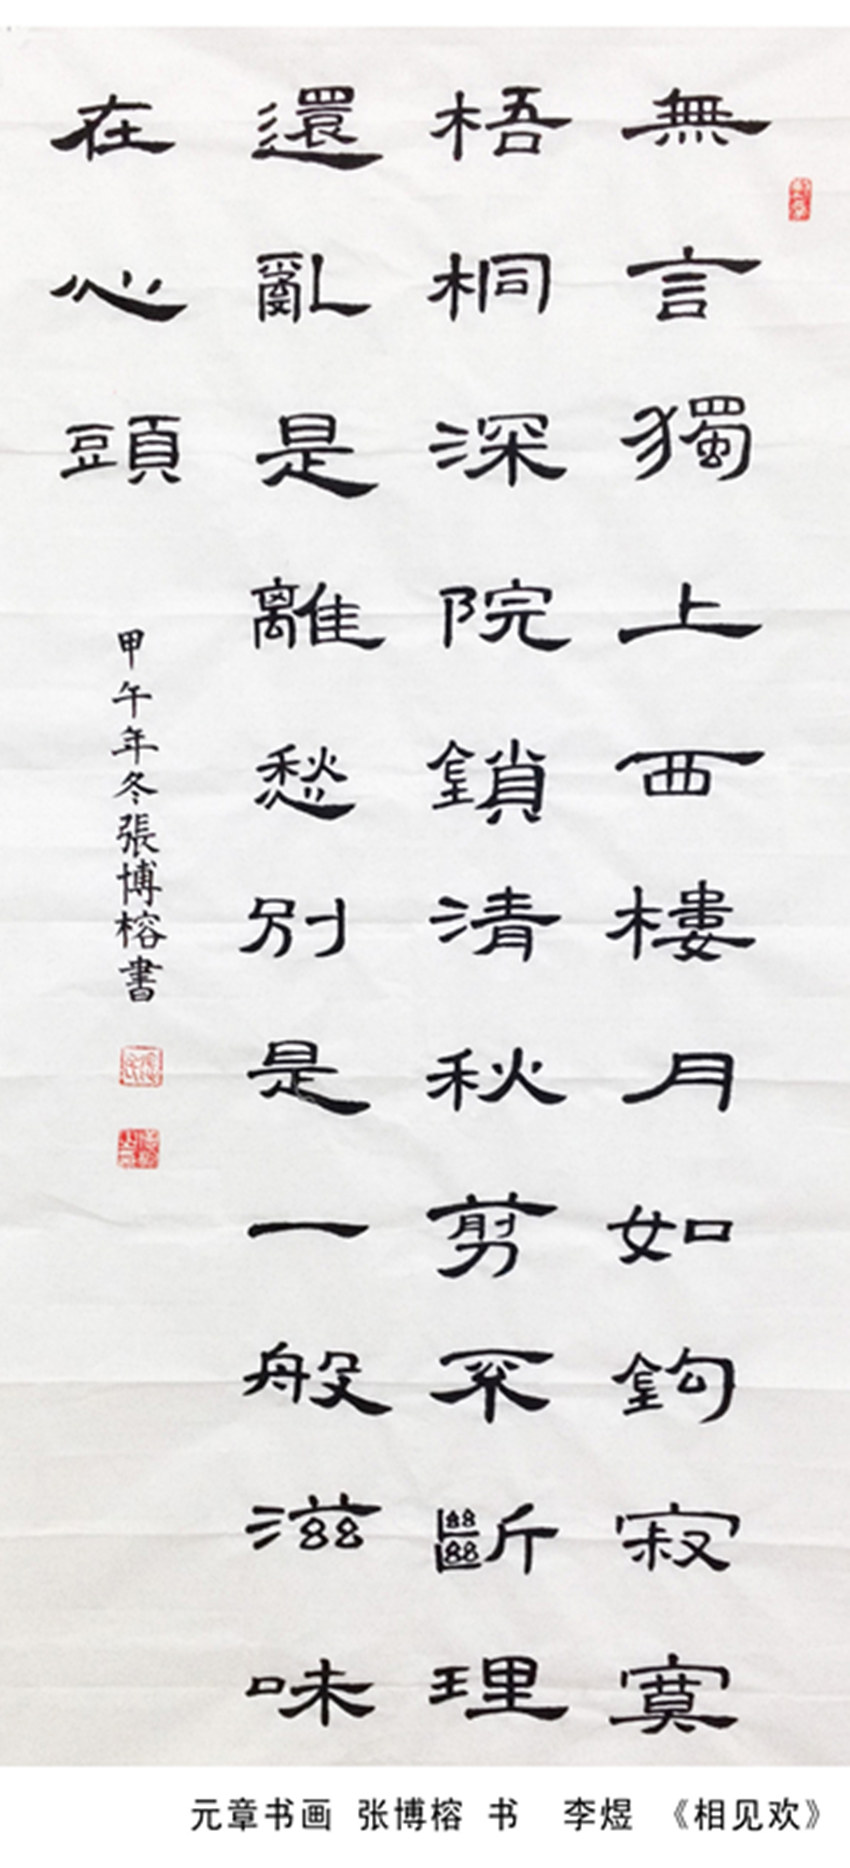 無言獨上西樓月如鈎寂寞
梧桐深院鎖清秋剪不斷理
還亂是離愁別是一般滋味
在心頭
甲午年冬張博榕書
元章书画 张博榕 书 李煜 《相见欢》